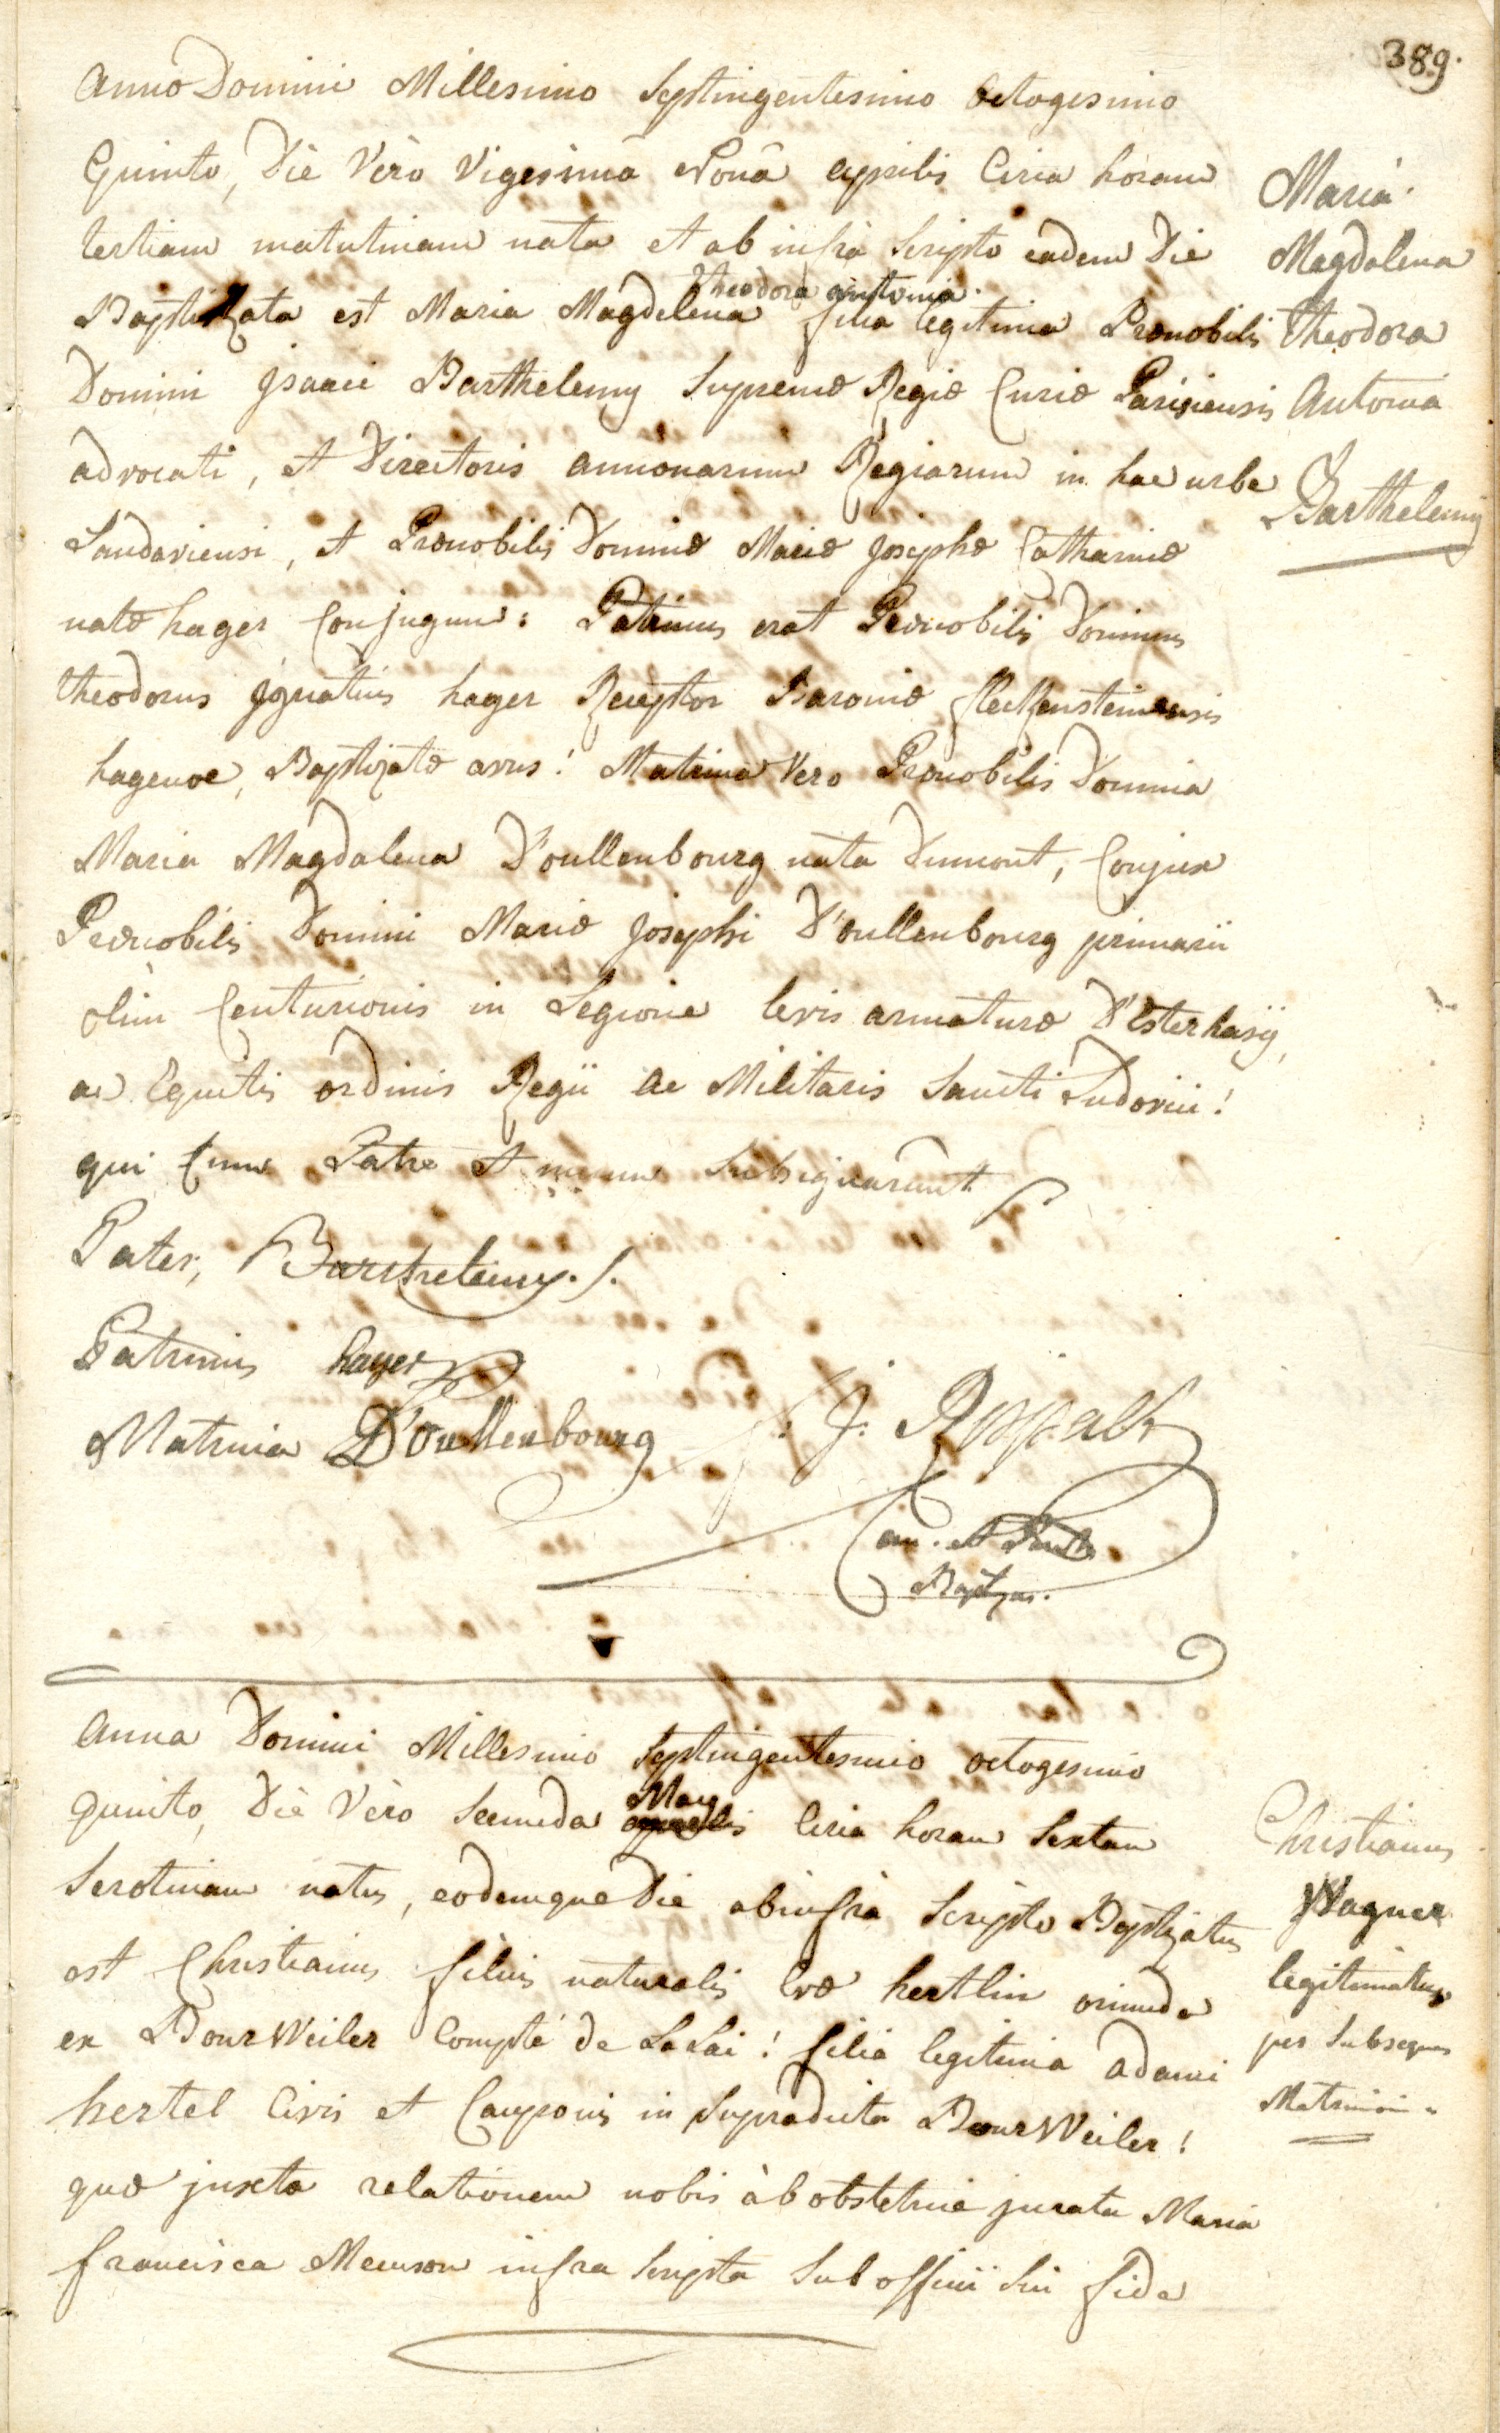 389.
Anno Domini Millesimo Septingentesimo Octogesimo
Quinto, Die Vero Vigesimâ Nonâ aprilis Circa horam
tertiam matutinam nata et ab infrà Scripto eadem Die
Theodora antonia.
Baptizata est Maria Magdelena filia legitima Prænobilis
Domini Jsaaci Barthelemy Supremæ Regiæ Curiæ Parisiensis
advocati, et Directoris annonarum Regiarum in hac urbe
Landaviensi, et Prænobilis Dominæ Mariæ Josephæ Catharinæ
natæ hager Conjugum: Patrinus erat Prænobilis Dominus
theodorus Jgnatius hager Receptor Baroniæ fleckensteinensis
hagenoæ, Baptizatæ avus! Matrina Vero Prænobilis Domina
Maria Magdalena D'oullenbourg nata Dumont, Conjux
Prænobilis Domini Mariæ Josephi D'oullenbourg primarii
olim Centurionis in Legione levis armaturæ D'Esterhasÿ,
ac Equitis ordinis Regii ac Militaris Sancti Ludovici!
qui Cum Patre et mecum Subsignarunt
Maria
Magdalena
Theodora
Antonia
Barthelemy
Pater, Barthelemy
Patrinus hager
Matrina D'oullenbourg
J. J. Rossalk
Can. et
Baptizans.
Anna Domini Millesimo Septingentesimo octogesimo
May
Quinto, Die Vero Secunda aprilis Circa horam Sextam
Serotinam natus, eodemque Die ab infrà Scripto Baptizatus
est Christianus filius naturalis Evæ hertlin oriunda
ex BourWeiler Compté de LaLai! filia legitima adami
hertel Civis et Cauponis in Supradicta BourWeiler!
quæ juxta relationem nobis àb obstetrice jurata Maria
francisca infra Scripta Sub officii Sui fide
Christianus
Wagner
legitimatus
per Subsequens
Matrimoni